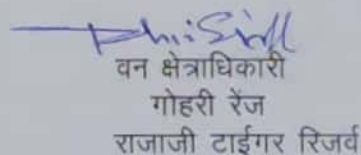 वन क्षेत्राधिकारी
गोहरी रेंज
राजाजी टाईगर रिजर्व